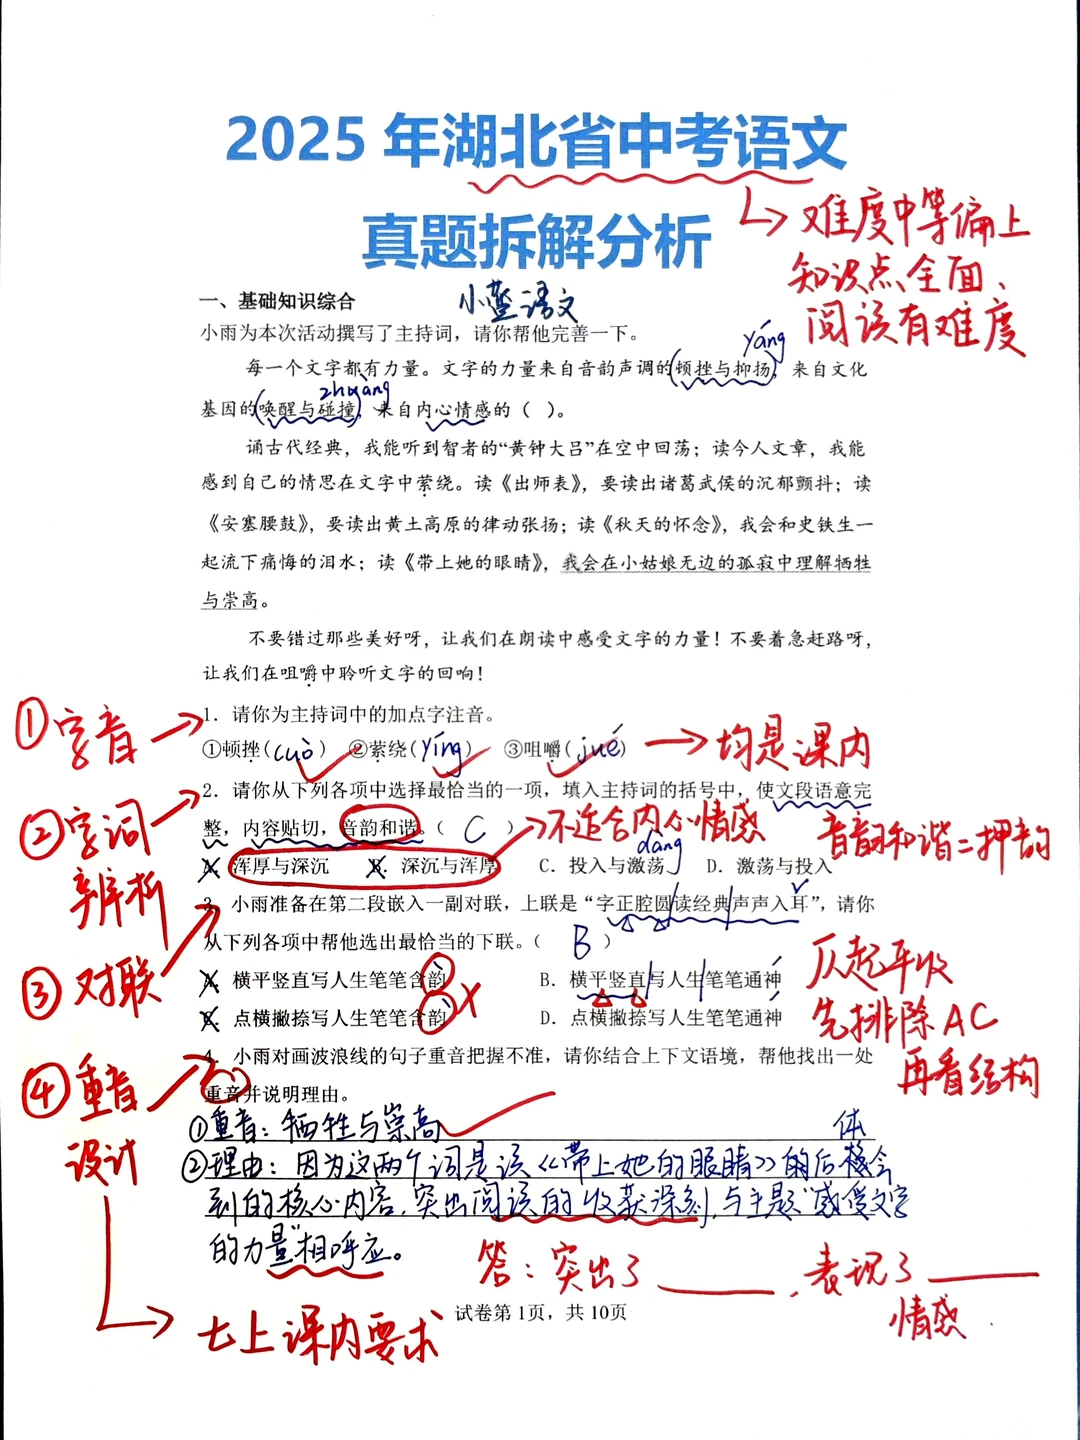 2025 年湖北省中考语文
真题拆解分析
难度中等偏上
知识点全面、
阅读有难度
一、基础知识综合
小蓝语文
小雨为本次活动撰写了主持词，请你帮他完善一下。
yáng
每一个文字都有力量。文字的力量来自音韵声调的(顿挫与抑扬)，来自文化
zhuàng
基因的(唤醒与碰撞)，来自内心情感的（ ）。
诵古代经典，我能听到智者的“黄钟大吕”在空中回荡；读今人文章，我能
感到自己的情思在文字中萦绕。读《出师表》，要读出诸葛武侯的沉郁颤抖；读
《安塞腰鼓》，要读出黄土高原的律动张扬；读《秋天的怀念》，我会和史铁生一
起流下痛悔的泪水；读《带上她的眼睛》，我会在小姑娘无边的孤寂中理解牺牲
与崇高。
不要错过那些美好呀，让我们在朗读中感受文字的力量！不要着急赶路呀，
让我们在咀嚼中聆听文字的回响！
①字音
1．请你为主持词中的加点字注音。
①顿挫(cuò) ②萦绕(yíng) ③咀嚼(jué)
均是课内
②字词
辨析
2．请你从下列各项中选择最恰当的一项，填入主持词的括号中，使文段语意完
整，内容贴切，音韵和谐。（ C ）
不适合内心情感
音韵和谐=押韵
dàng
A. 浑厚与深沉 B. 深沉与浑厚 C. 投入与激荡 D. 激荡与投入
③对联
3．小雨准备在第二段嵌入一副对联，上联是“字正腔圆读经典声声入耳”，请你
从下列各项中帮他选出最恰当的下联。（ B ）
A. 横平竖直写人生笔笔含韵 B. 横平竖直写人生笔笔通神
C. 点横撇捺写人生笔笔含韵 D. 点横撇捺写人生笔笔通神
仄起平收
先排除AC
再看结构
④重音
设计
4．小雨对画波浪线的句子重音把握不准，请你结合上下文语境，帮他找出一处
重音并说明理由。
①重音：牺牲与崇高
体
②理由：因为这两个词是读《带上她的眼睛》的后会
到的核心内容，突出阅读的收获深刻，与主题“感受文字
的力量”相呼应。
答：突出了______，表现了______
情感.
七上课内要求
试卷第 1页，共 10页